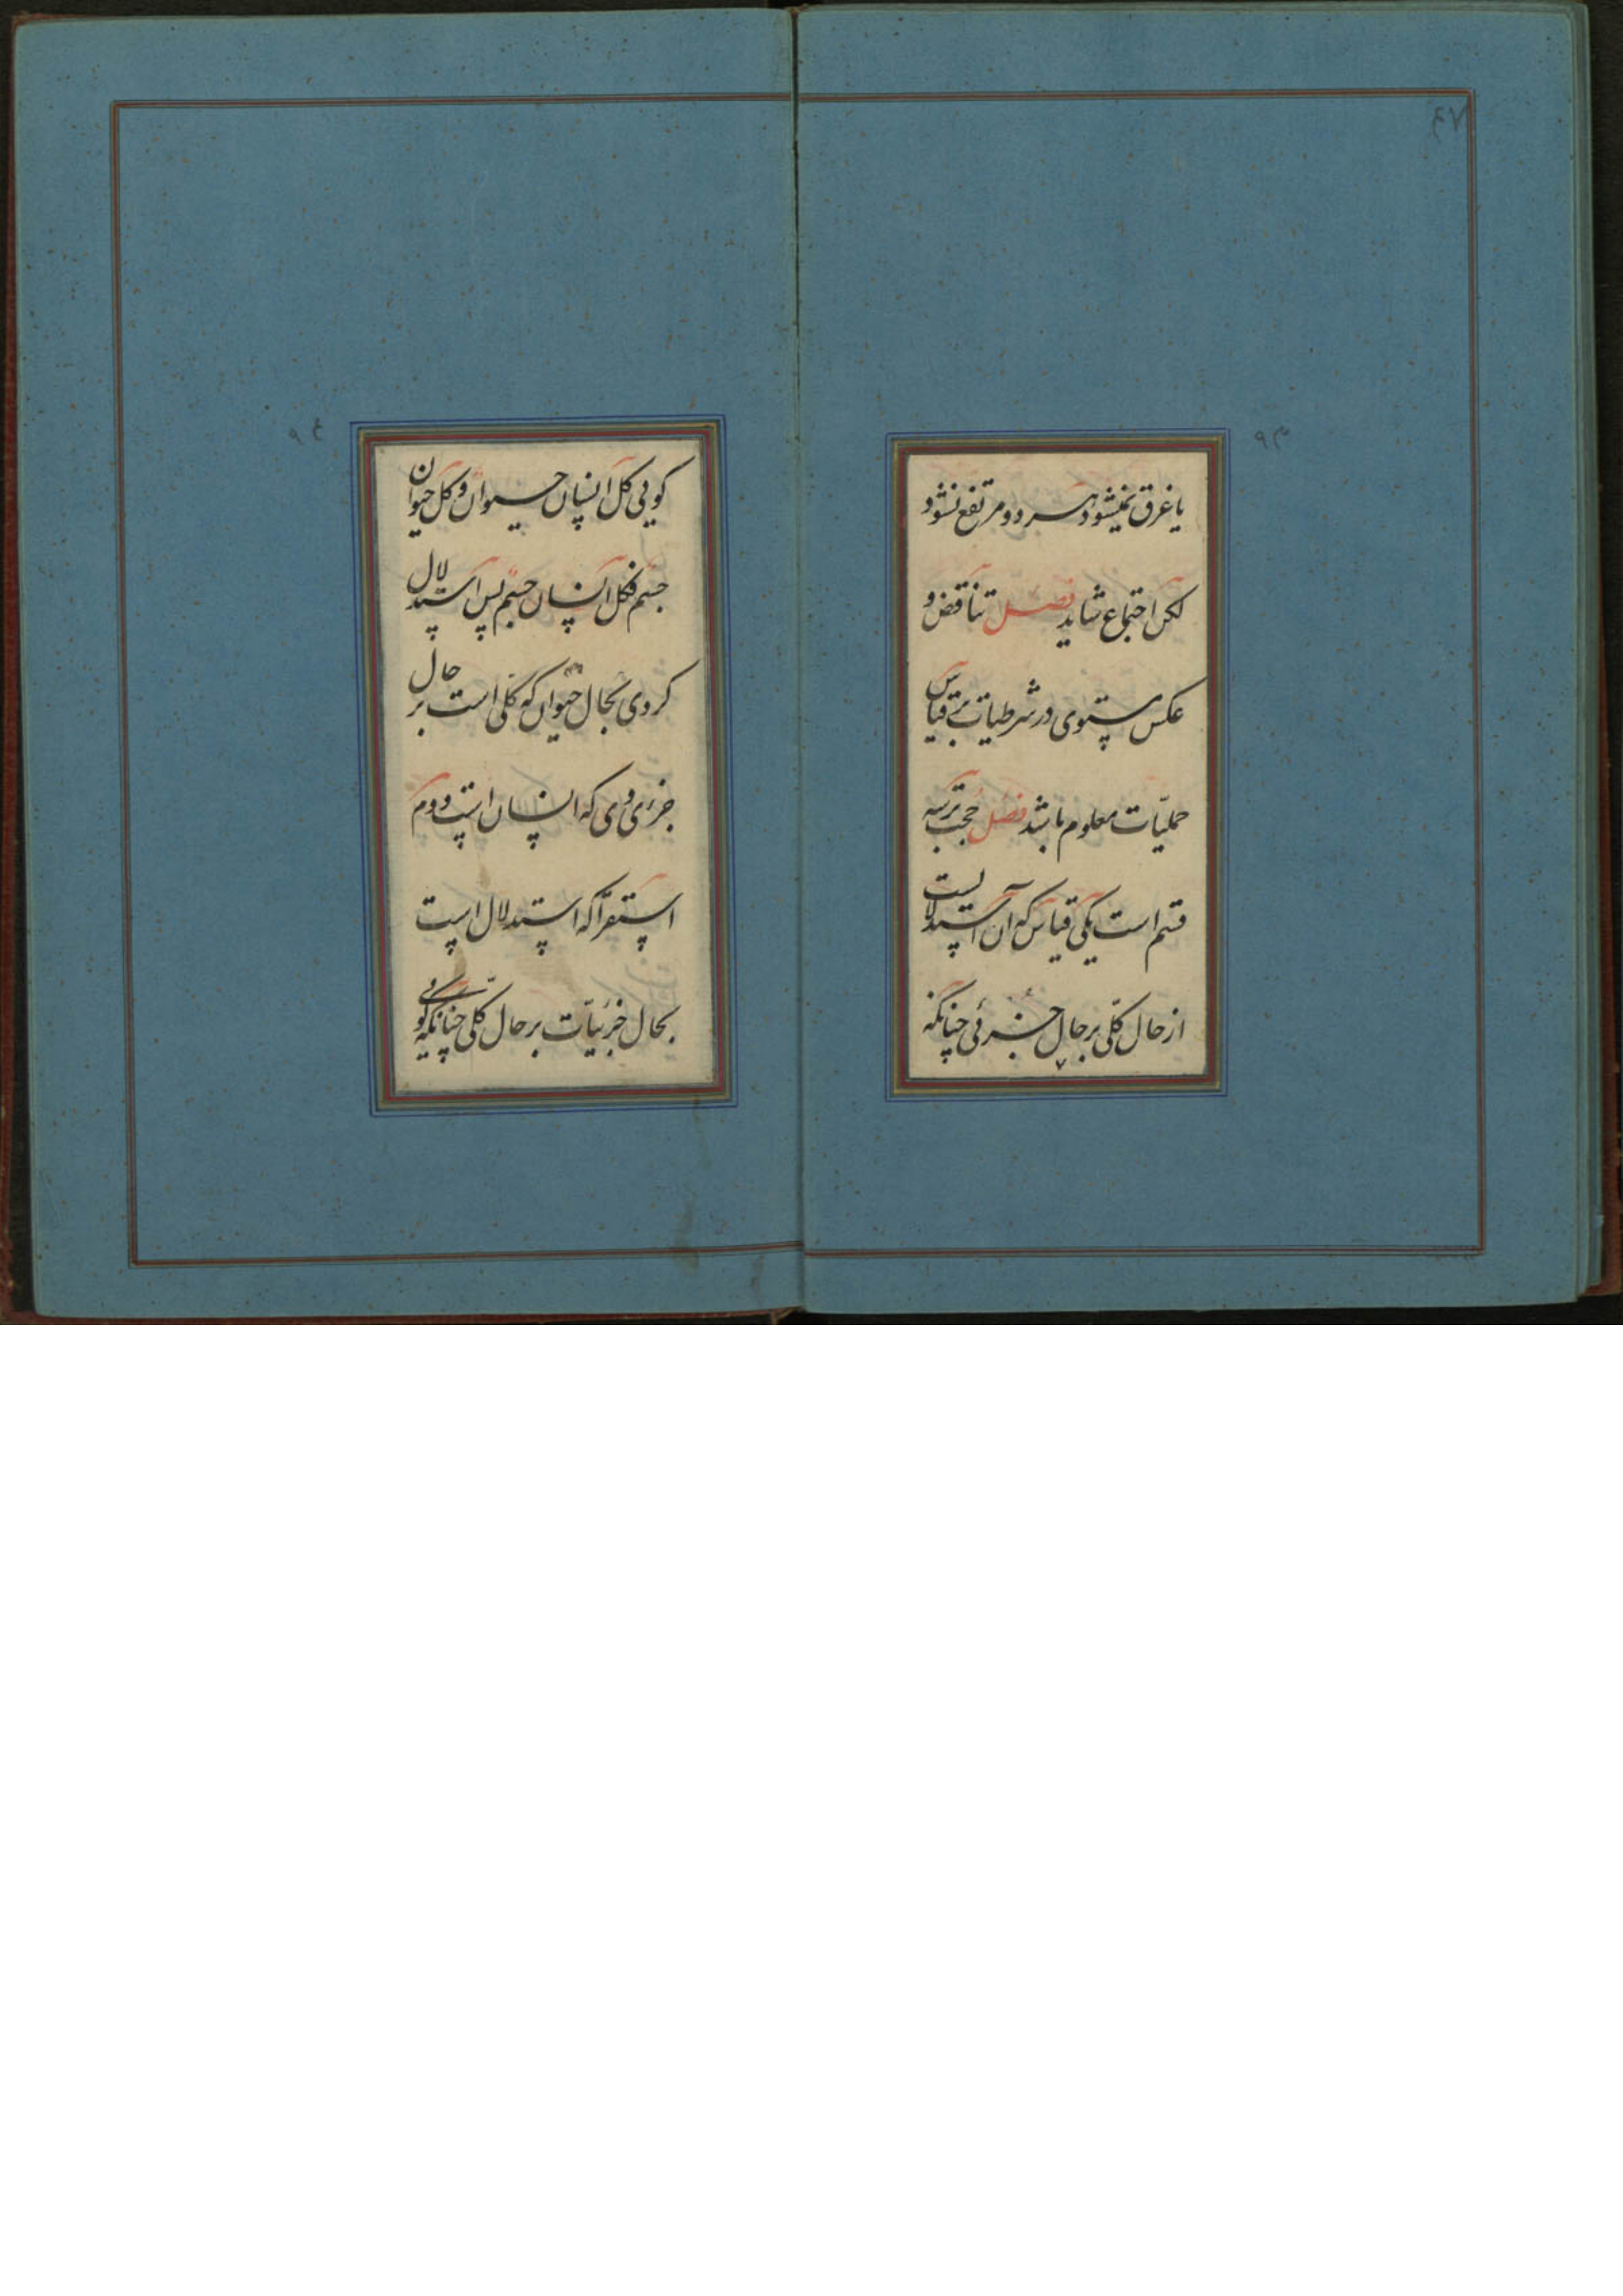 یا غرق نمیشود هر دو مرتفع نشود
لکن اجتماع شاید فصل تناقض و
عکس مستوی در شرطیات بر قیاس
حملیات معلوم باشد فصل حجت بر سه
قسم است یکی قیاس که آن استدلالیست
از حال کلی بر حال جزئی چنانکه
کویی کل انسان حیوان و کل حیوان
جسم فکل انسان جسم پس استدلال
کردی بحال حیوان که کلی است بر حال
جزئی وی که انسان است دوم
استقرا که استدلال است
بحال جزئیات بر حال کلی چنانکه کویی